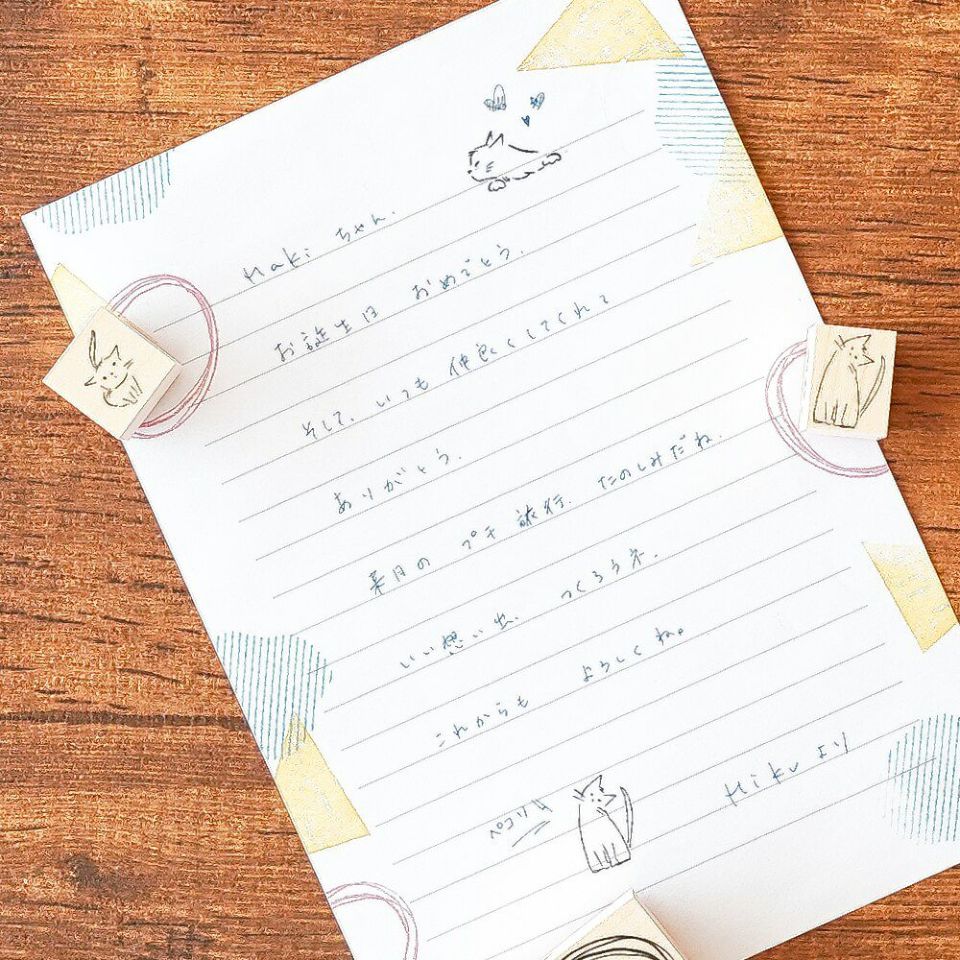 Maki ちゃん.
お誕生日 おめでとう.
そして、いつも 仲良くしてくれて
ありがとう.
来月の プチ 旅行. たのしみだね.
いい想い出. つくろうネ.
これからも よろしくね。
ペコリ
Hikuより